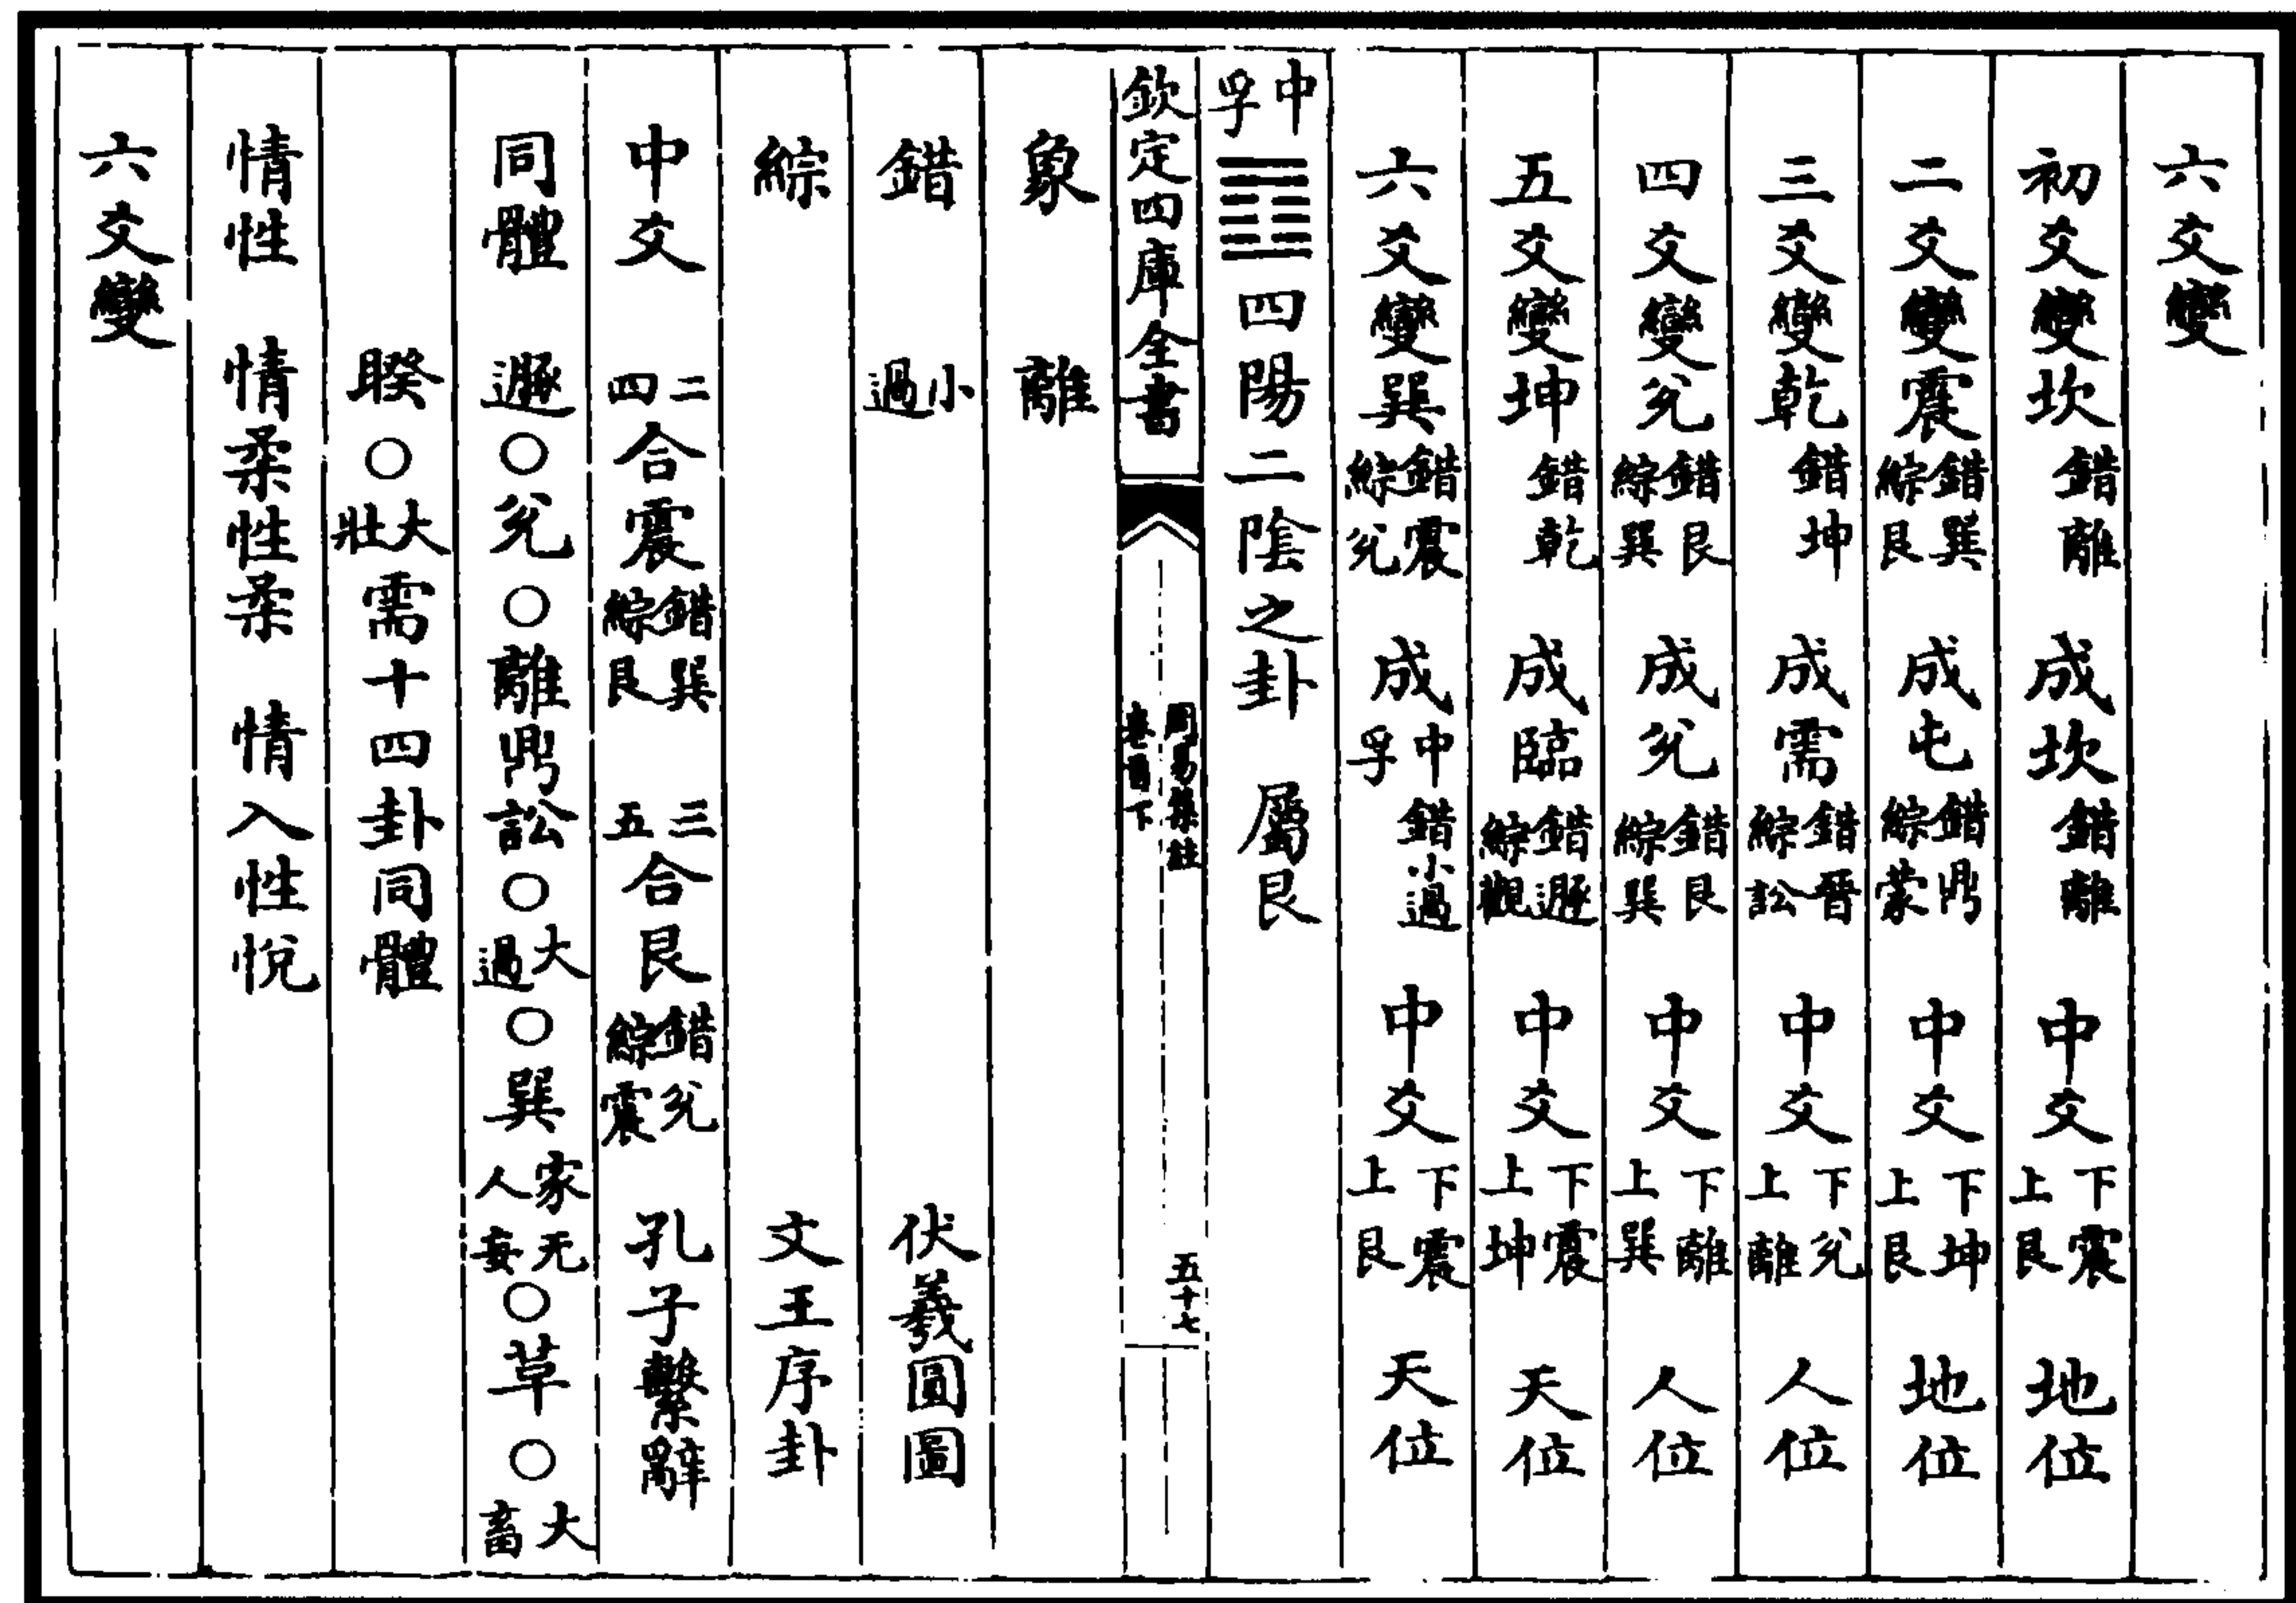 六爻變
初爻變坎錯離 成坎錯離 中爻下震上艮 地位
二爻變震錯巽綜艮 成屯錯鼎綜蒙 中爻下坤上艮 地位
三爻變乾錯坤 成需錯晉綜訟 中爻下兊上離 人位
四爻變兊錯艮綜巽 成兊錯艮綜巽 中爻下離上巽 人位
五爻變坤錯乾 成臨錯遯綜觀 中爻下震上坤 天位
六爻變巽錯震綜兊 成中孚錯小過 中爻下震上艮 天位
中孚䷼四陽二隂之卦 屬艮
欽定四庫全書
周易集註
卷首下
五十七
象 離
錯 小過 伏羲圓圖
綜 文王序卦
中爻 二四合震錯巽綜艮 三五合艮錯兊綜震 孔子繫辭
同體 遯○兊○離鼎訟○大過○巽家人无妄○革○大畜
睽○大壯需十四卦同體
情性 情柔性柔 情入性悅
六爻變